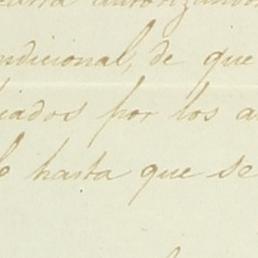 autorizando
ndicional, de que
iados por los a
hasta que se